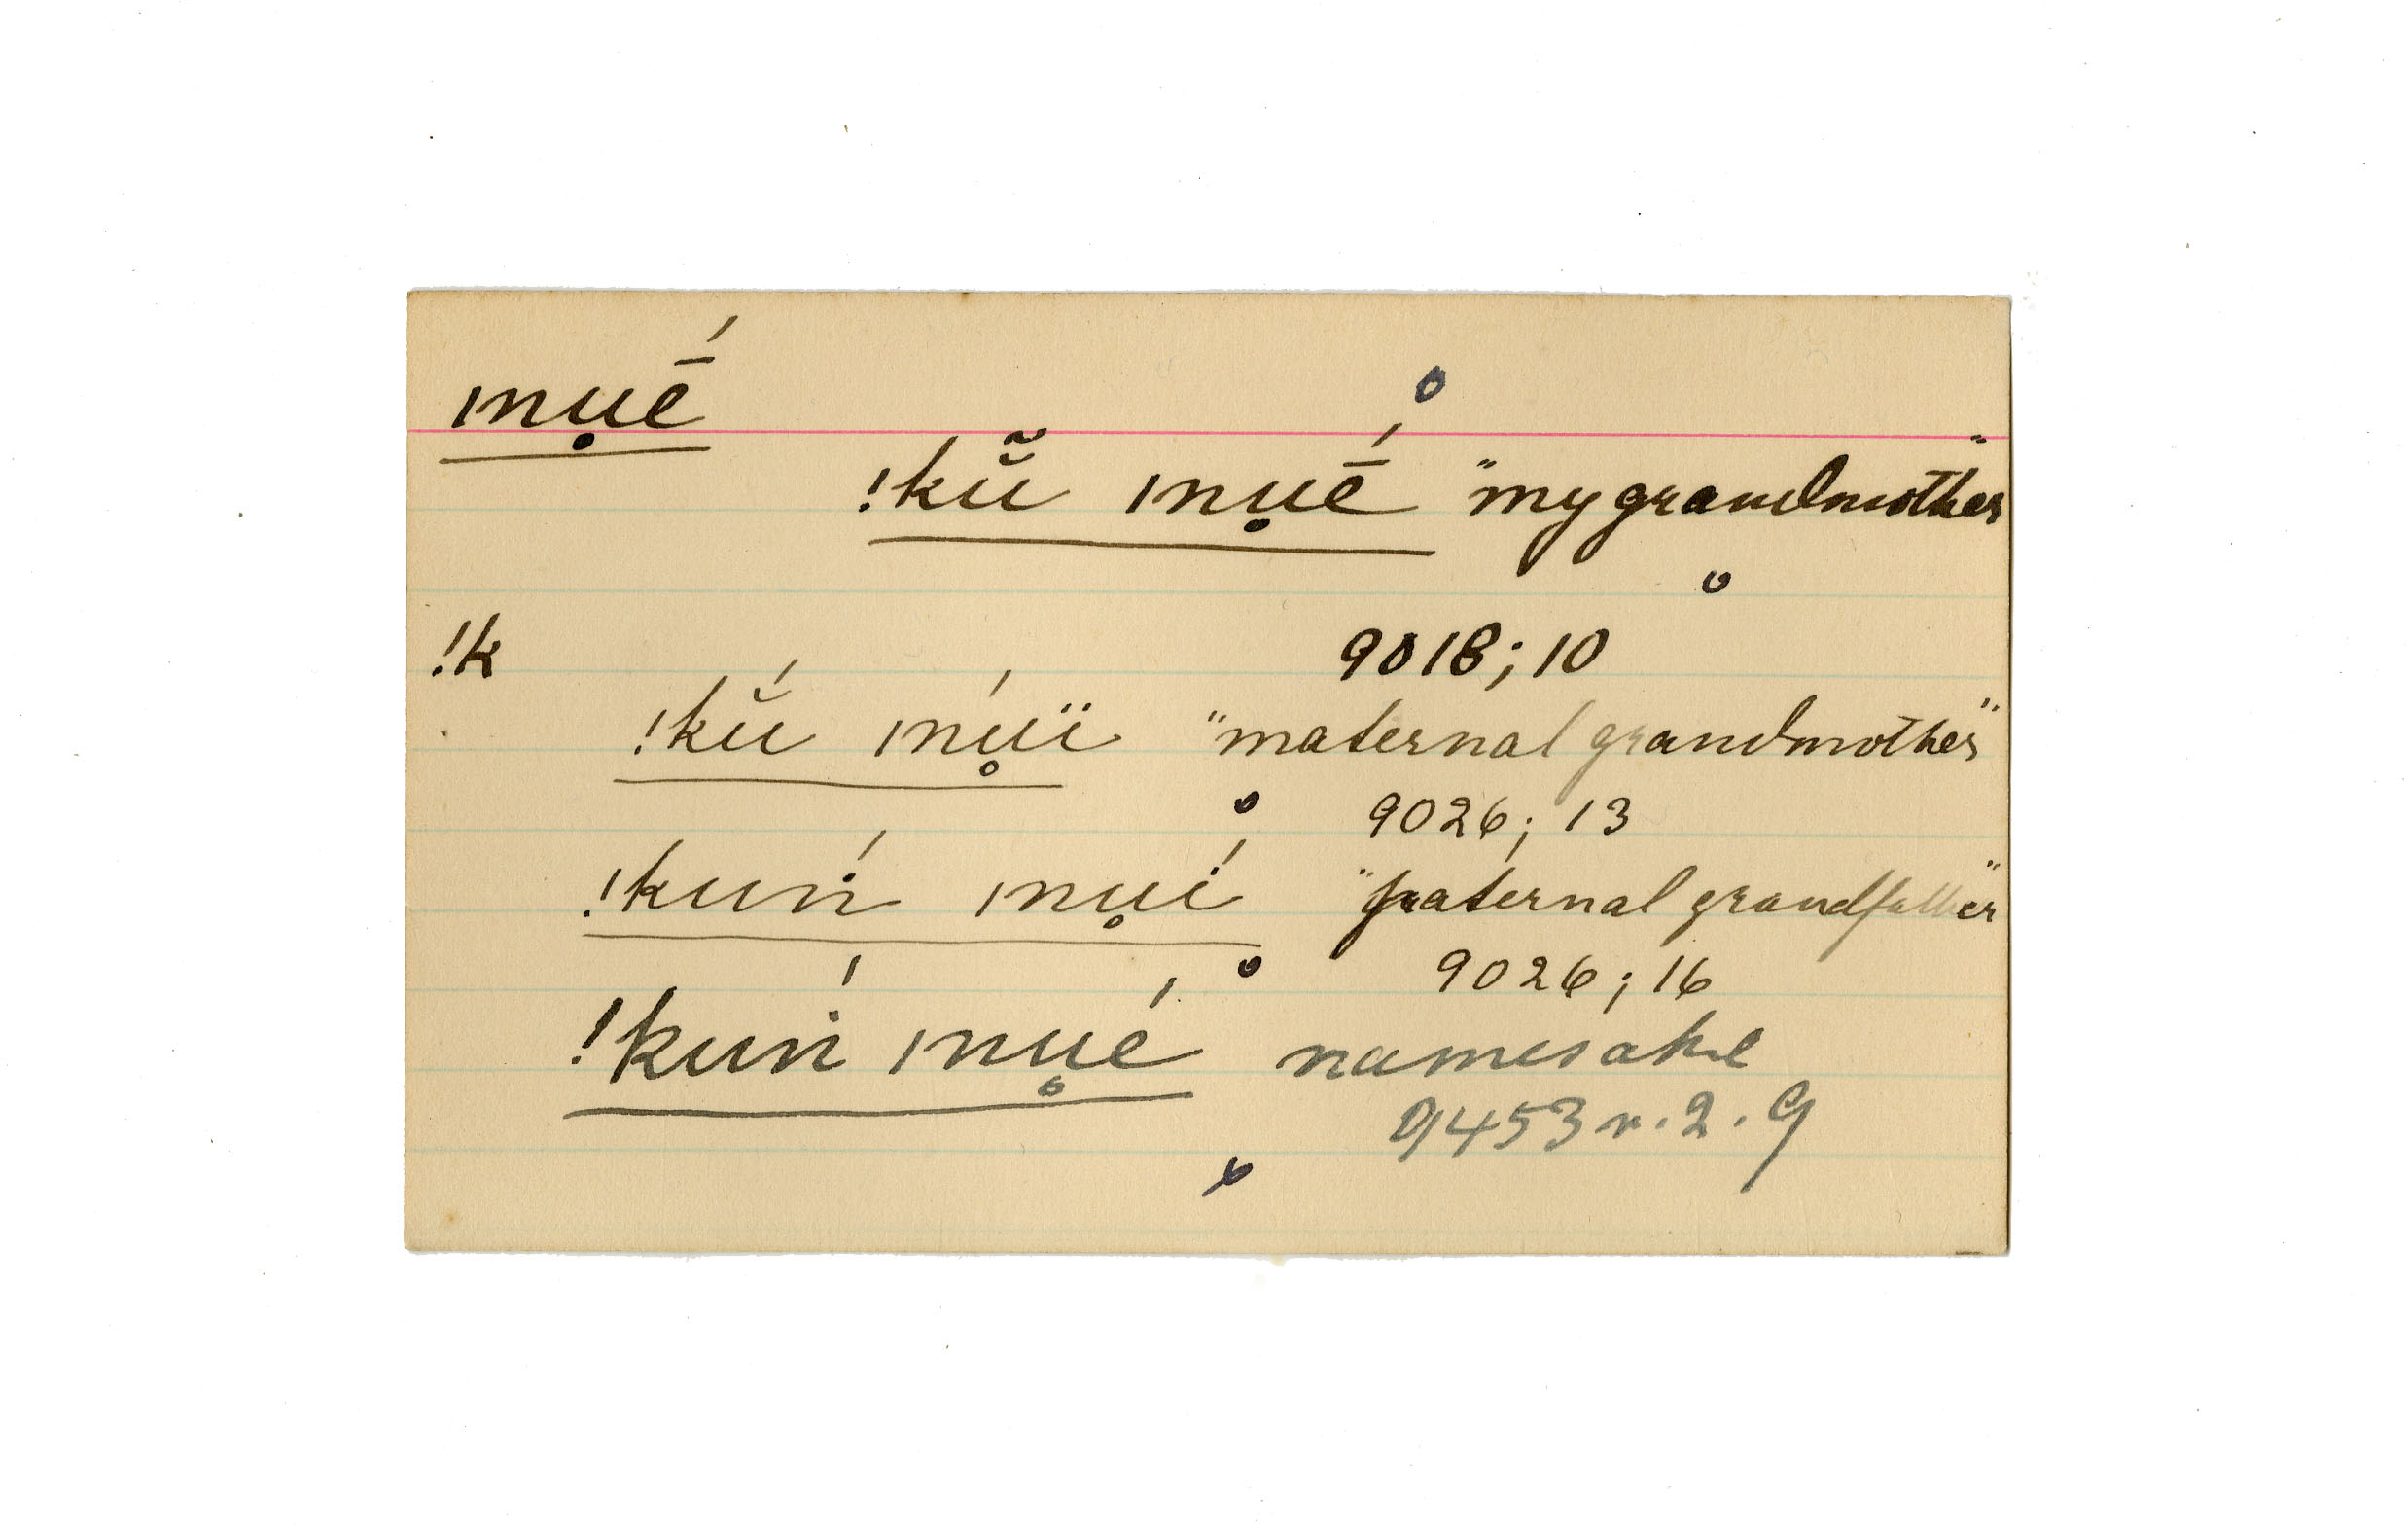 ınu̥ḗ
!kṵ̆ ınu̥ḗ "my grandmother"
!k 9018; 10
!kŭ́ ınu̥í̈ "maternal grandmother"
9026; 13
!kuń ınu̥í "paternal grandfather"
9026; 16
!kuń ınu̥é namesake
9453 r. 2. G